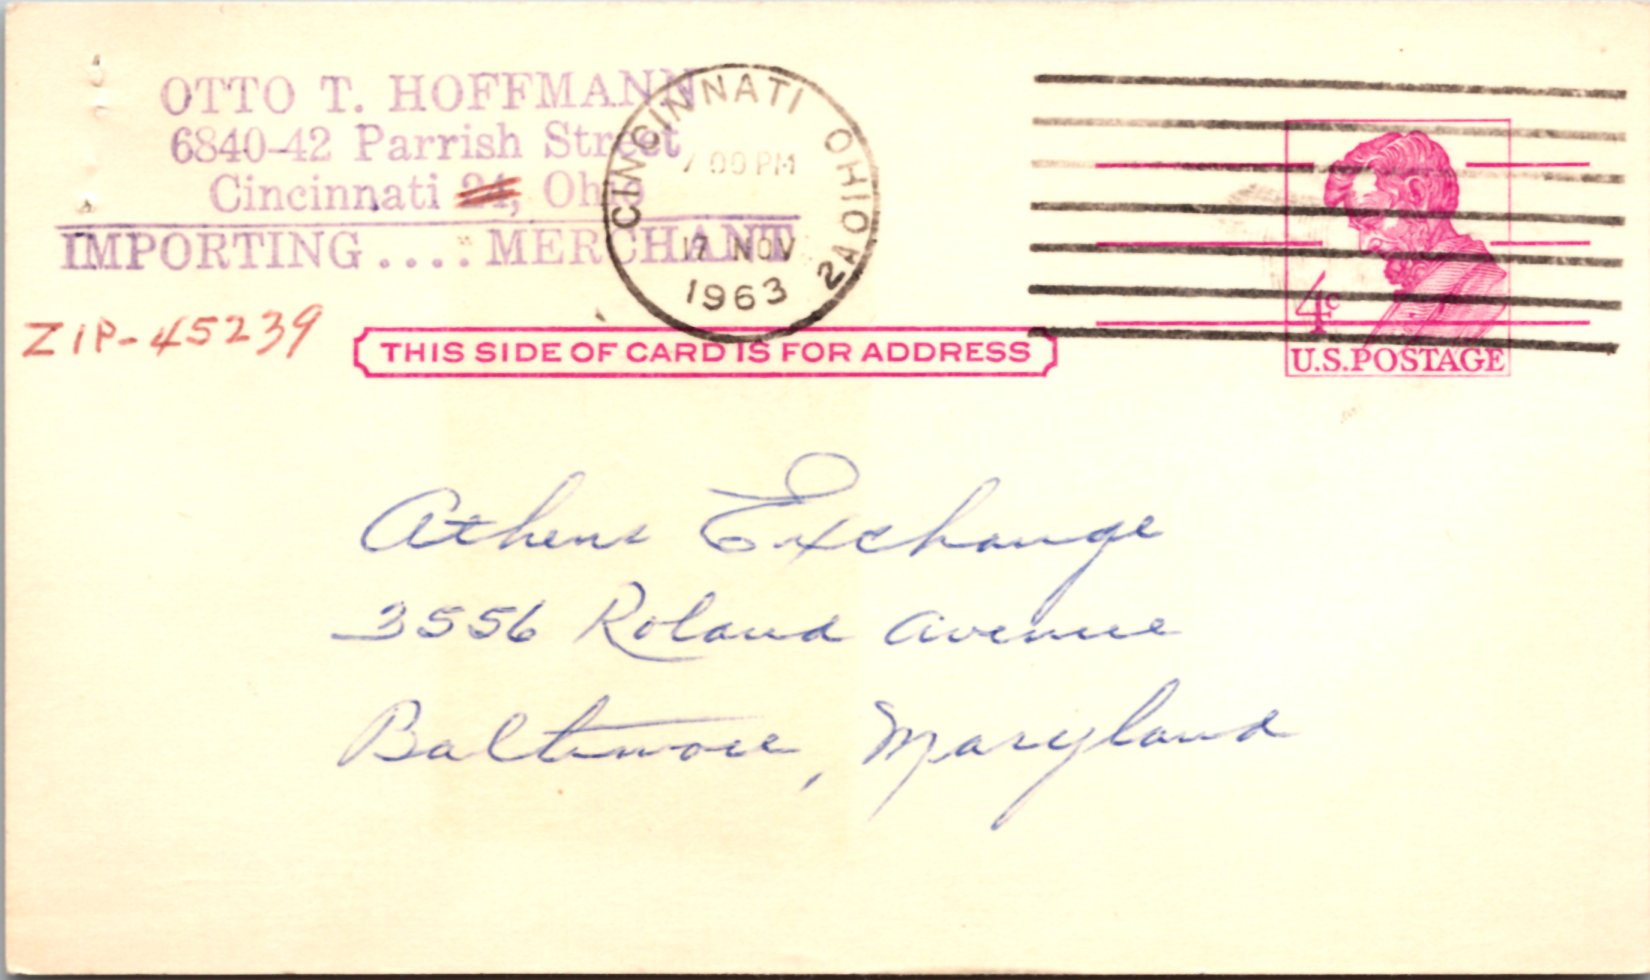 OTTO T. HOFFMANN
6840-42 Parrish Street
Cincinnati 24, Ohio
IMPORTING....: MERCHANT
ZIP-45239
CINCINNATI OHIO 2A
7 00 PM
17 NOV
1963
4c
U.S.POSTAGE
THIS SIDE OF CARD IS FOR ADDRESS
Athens Exchange
3556 Roland Avenue
Baltimore, Maryland